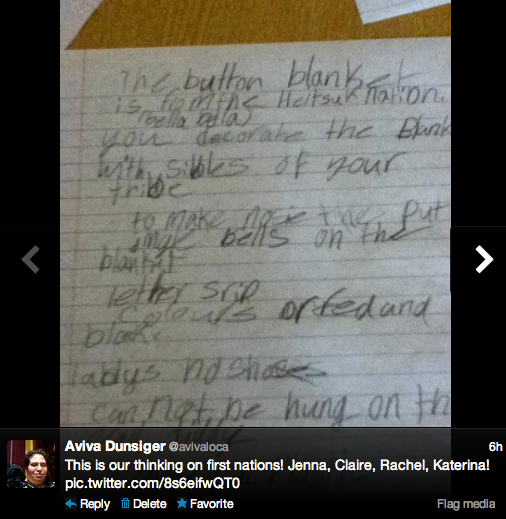 The button blanket
is from the Heitsuk nation.
(bella bella)
you decorate the Blank
with sibbles of your
tribe
to make noise the put
jingle bells on the
blanket
lether srip
Colours or red and
blak
ladys nd
can not be hung on th
Aviva Dunsiger @avivaloca 6h
This is our thinking on first nations! Jenna, Claire, Rachel, Katerina!
pic.twitter.com/8s6eifwQT0
Reply Delete Favorite Flag media